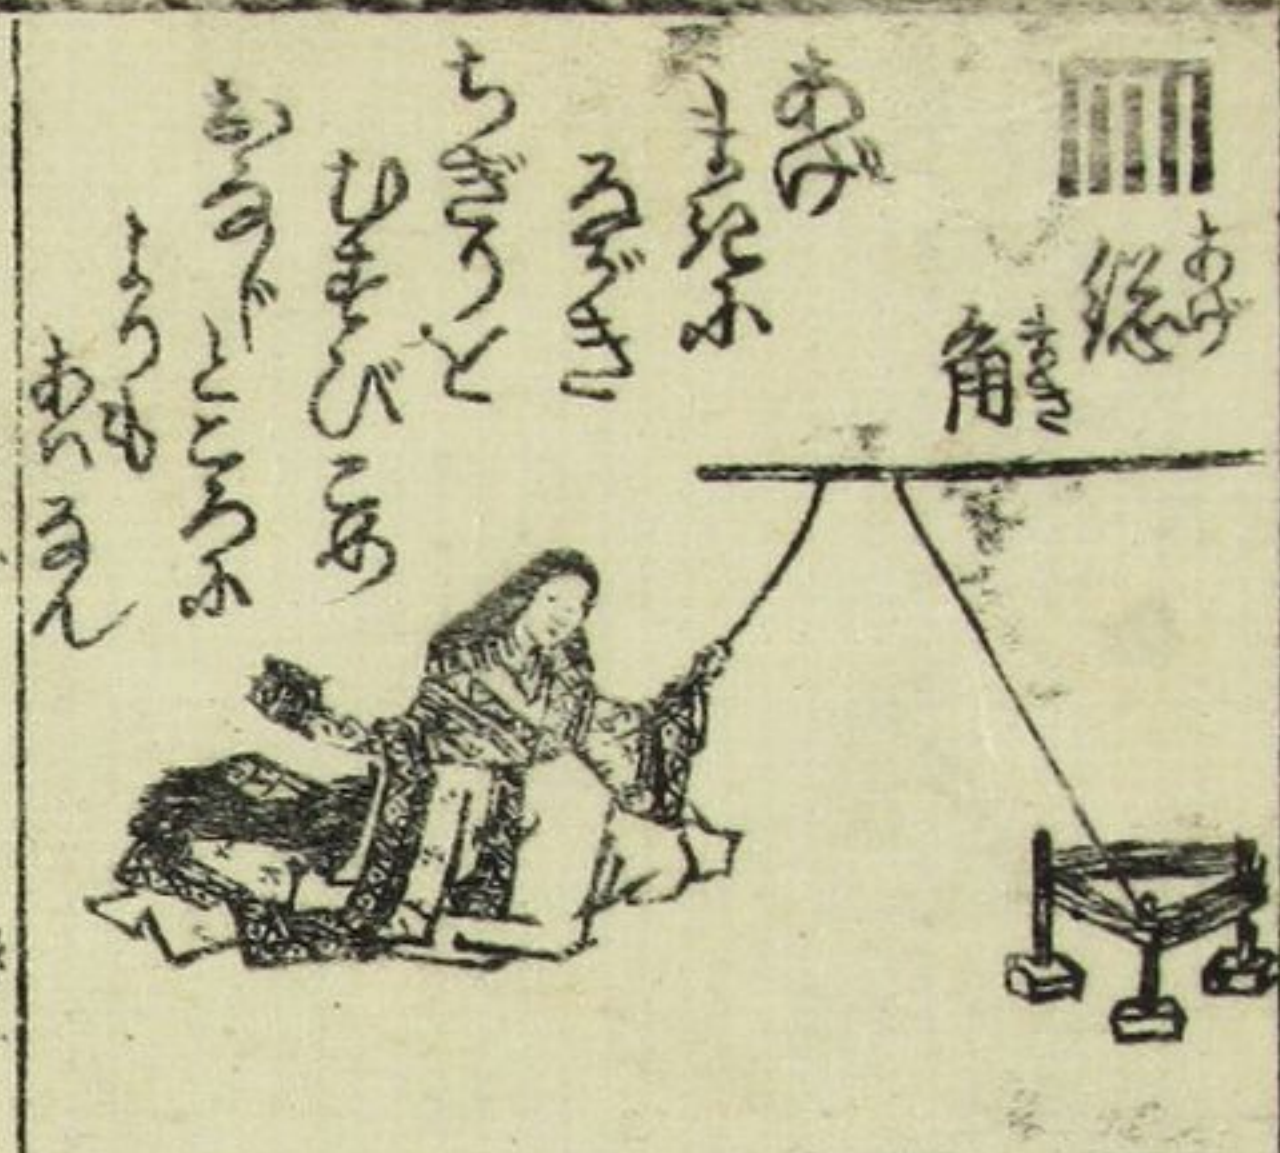 総角
あげまき
あげ
まきに
ながき
ちぎりを
むすびこめ
おなじところに
よりも
あはなん